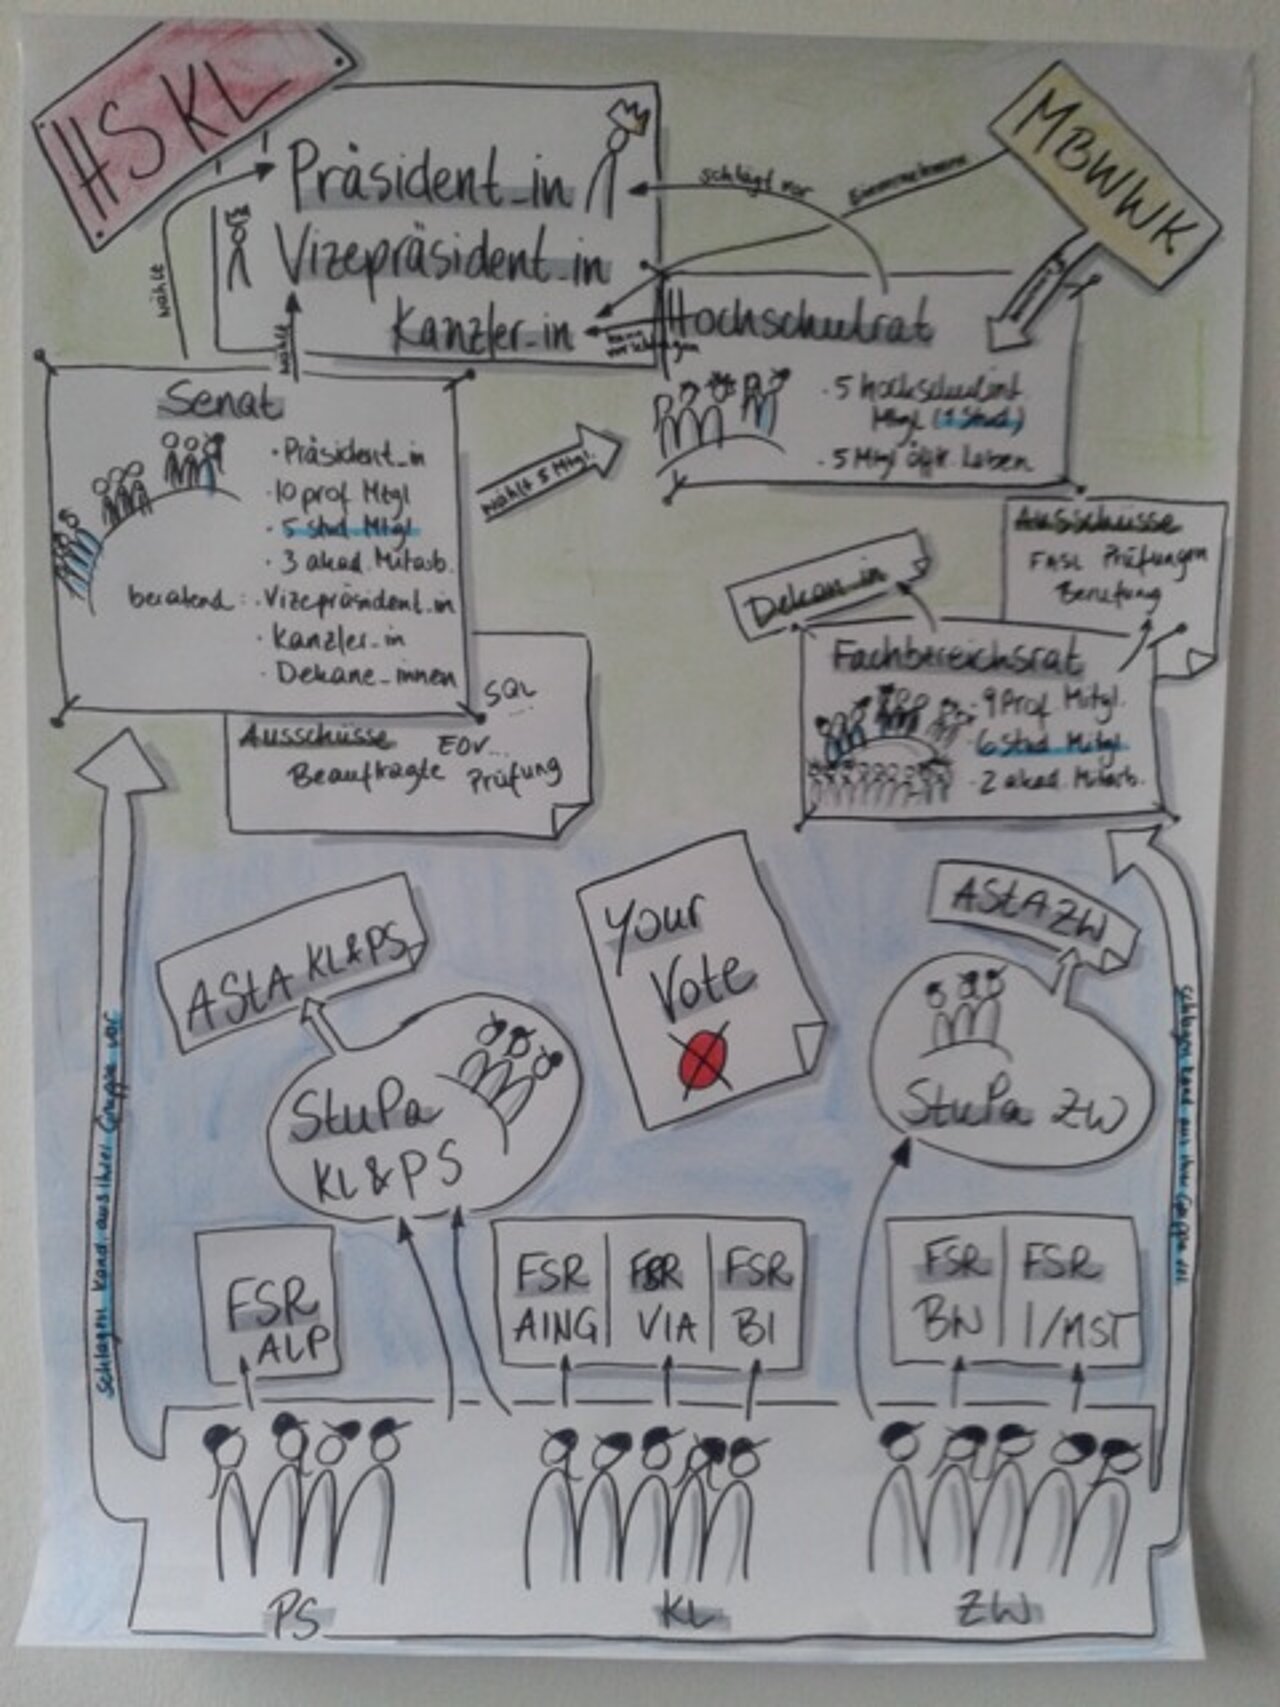 HS KL
MBWWK
Präsident_in
Vizepräsident_in
Kanzler_in
schlägt vor
wählt
wählt
Hochschulrat
· 5 hochschulint.
Mtgl (1 Stud)
· 5 Mtgl öff. Leben
Senat
· Präsident_in
· 10 prof Mtgl
· 5 stud. Mtgl
· 3 akad. Mitarb.
beratend: · Vizepräsident_in
· Kanzler_in
· Dekane_innen
wählt 5 Mtgl.
Ausschüsse
Beauftragte
SQL
...
EDV...
Prüfung
Dekan_in
Ausschüsse
Prüfungen
Berufung
Fachbereichsrat
· 9 Prof Mitgl.
· 6 Stud Mitgl
· 2 akad. Mitarb.
AStA KL&PS
Your
Vote
AStA ZW
StuPa
KL&PS
StuPa ZW
schlagen kand aus ihrer Gruppe vor
schlagen kand aus ihrer Gruppe vor
FSR
ALP
FSR
AING
FSR
VIA
FSR
BI
FSR
BW
FSR
I/MST
PS
KL
ZW